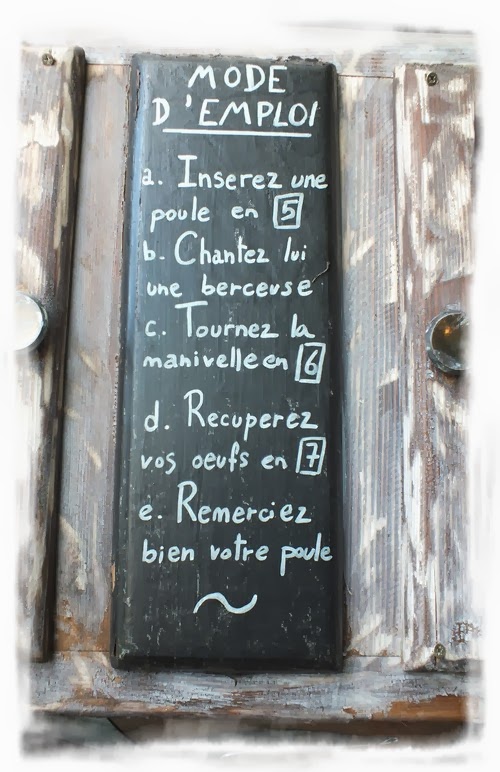 MODE
D'EMPLOI
a. Inserez une
poule en 5
b. Chantez lui
une berceuse
c. Tournez la
manivelle en 6
d. Recuperez
vos oeufs en 7
e. Remerciez
bien votre poule